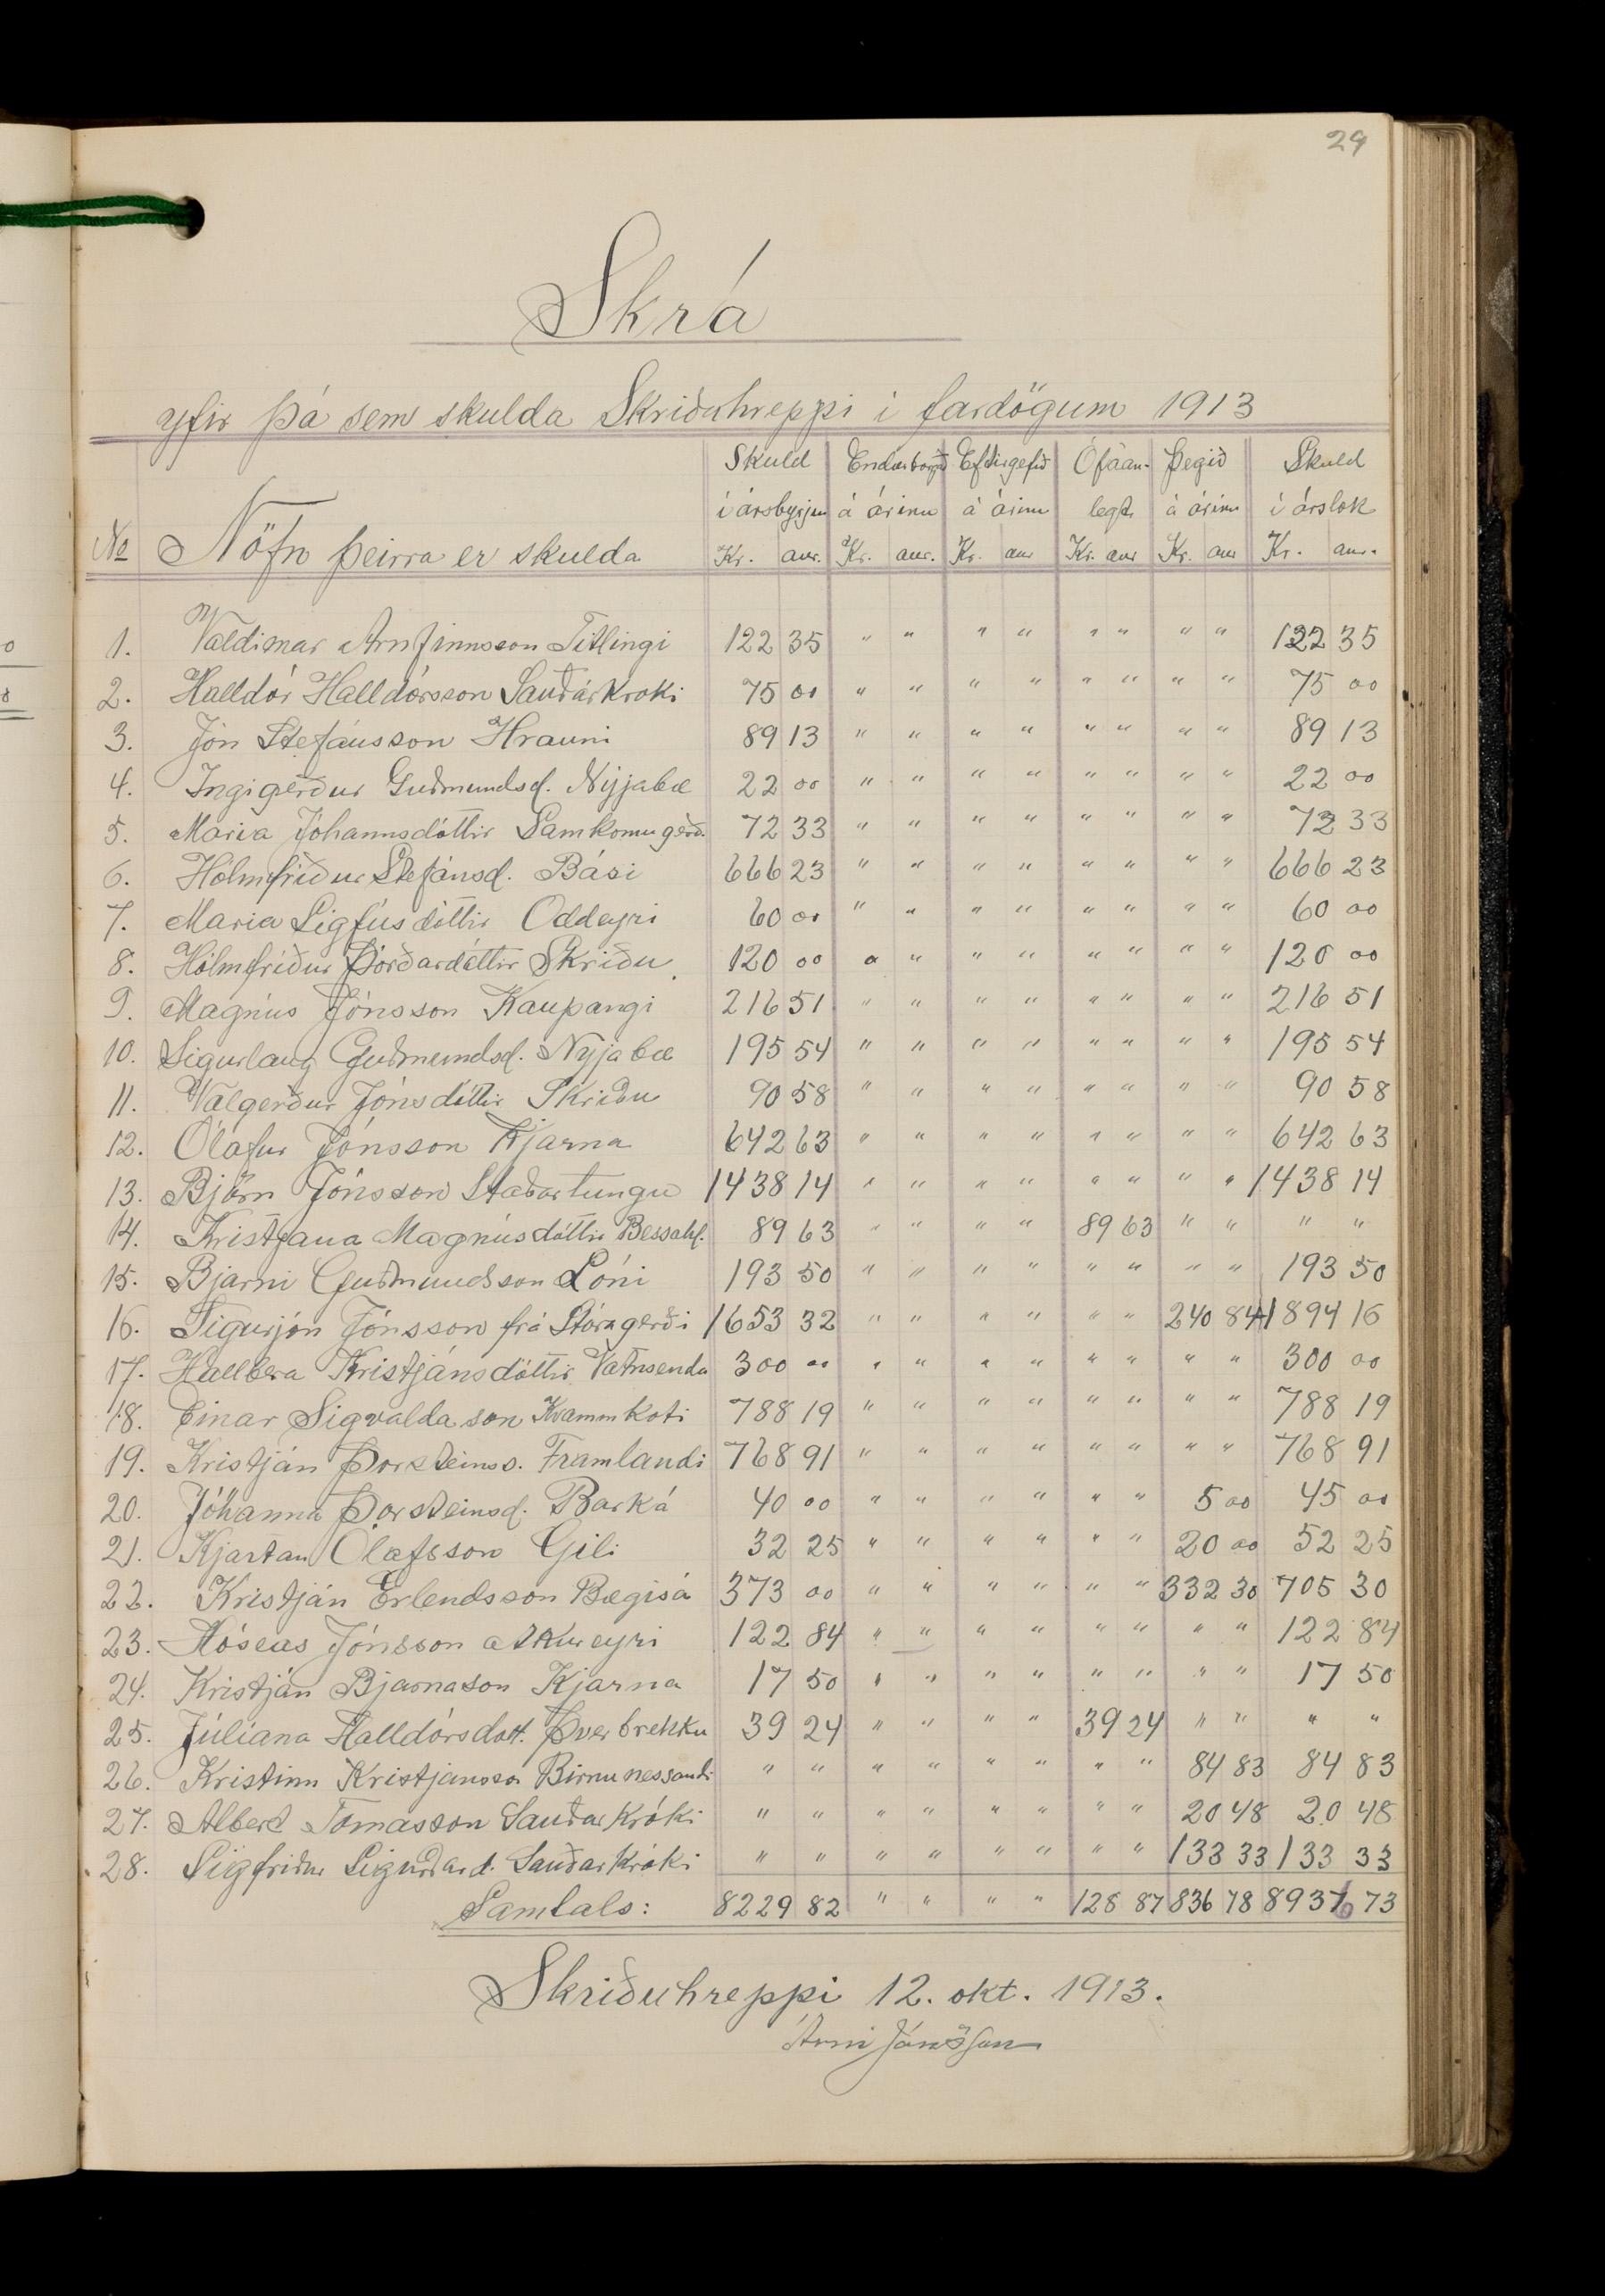 29
Skrá
yfir þá sem skulda Skriðuhreppi í fardögum 1913
Skuld Endurborgð Eftirgefið Ófáan- Þegið Skuld
í ársbyrjun á árinu á árinu legt á árinu í árslok
No Nöfn þeirra er skulda Kr. aur. Kr. aur. Kr. aur Kr. aur Kr. aur Kr. aur.
1. Valdimar Arnfinnsson Titlingi 122 35 " " " " " " " " 122 35
2. Halldór Halldórsson Sauðárkroki 75 00 " " " " " " " " 75 00
3. Jón Stefánsson Hrauni 89 13 " " " " " " " " 89 13
4. Ingigerður Guðmundsd. Nýjabæ 22 00 " " " " " " " " 22 00
5. Maria Jóhannsdóttir Samkomugerð. 72 33 " " " " " " " " 72 33
6. Hólmfríður Stefánsd. Bási 666 23 " " " " " " " " 666 23
7. Maria Sigfúsdóttir Oddeyri 60 00 " " " " " " " " 60 00
8. Hólmfríður Þórðardóttir Skriðu 120 00 " " " " " " " " 120 00
9. Magnús Jónsson Kaupangi 216 51 " " " " " " " " 216 51
10. Sigurlaug Guðmundsd. Nýjabæ 195 54 " " " " " " " " 195 54
11. Valgerður Jónsdóttir Skriðu 90 58 " " " " " " " " 90 58
12. Ólafur Jónsson Kjarna 642 63 " " " " " " " " 642 63
13. Björn Jónsson Staðartungu 1438 14 " " " " " " " " 1438 14
14. Kristjana Magnúsdóttir Bessahl. 89 63 " " " " 89 63 " " " "
15. Bjarni Guðmundsson Lóni 193 50 " " " " " " " " 193 50
16. Sigurjón Jónsson frá Stóragerði 1653 32 " " " " " " 240 84 1894 16
17. Hallbera Kristjánsdóttir Vatnsenda 300 00 " " " " " " " " 300 00
18. Einar Sigvaldason Kvammkoti 788 19 " " " " " " " " 788 19
19. Kristján Þorsteinss. Framlandi 768 91 " " " " " " " " 768 91
20. Jóhanna Þorsteinsd. Barká 40 00 " " " " " " 5 00 45 00
21. Kjartan Ólafsson Gili 32 25 " " " " " " 20 00 52 25
22. Kristján Erlendsson Bægisá 373 00 " " " " " " 332 30 705 30
23. Hóseas Jónsson Akureyri 122 84 " " " " " " " " 122 84
24. Kristján Bjarnason Kjarna 17 50 " " " " " " " " 17 50
25. Júlíana Halldórsdott. Þverbrekku 39 24 " " " " 39 24 " " " "
26. Kristinn Kristjánsson Birnunessandi " " " " " " " " 84 83 84 83
27. Albert Tómasson Sauðarkróki " " " " " " " " 20 48 20 48
28. Sigfríður Sigurðard. Sauðarkróki " " " " " " " " 133 33 133 33
Samtals: 8229 82 " " " " 128 87 836 78 8937 73
Skriðuhreppi 12. okt. 1913.
Árni Jónsson